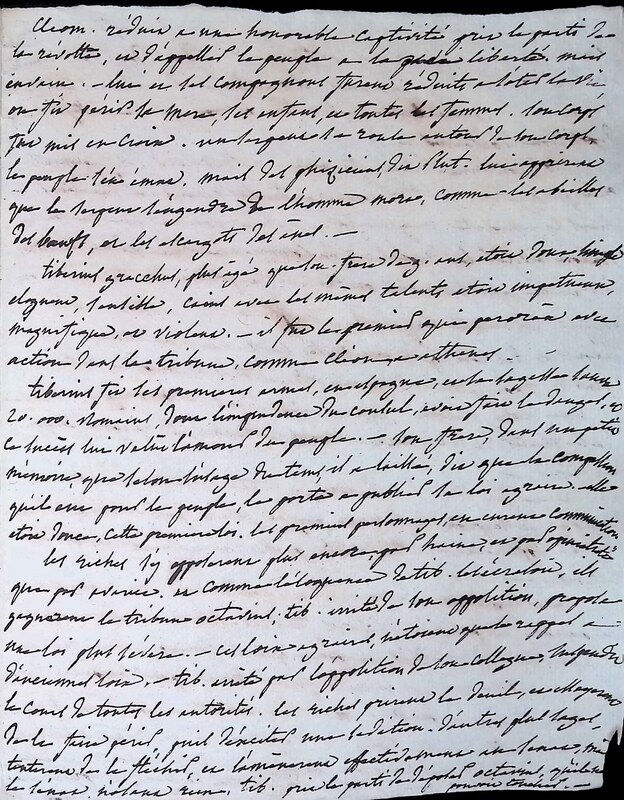 Cleom. réduit a une honorable captivité prit le parti de
la révolte, et d'appeller le peuple a la liberté, mais
envain. - lui et ses compagnons furent réduits a s'oter la vie
on fit périr sa mere ses enfens, et toutes les femmes. son corps
fut mis en croix. un serpent se roula autour de son corps,
le peuple s'en émut, mais des phiziciens, dit Plut. lui apprirent
que le serpent s'engendre de l'homme mort, comme les abeilles
des boeufs, et les escargots des ânes. -
tiberius gracchus, plus agé que son frere de 9. ans, etoit doux, simple
eloquent, sensible, caius avec les mêmes talents etoit impetueux,
magnifique, et violent. - il fut le premier qui perora avec
action dans la tribune, comme Cléon, a athenes. -
tiberius fit ses premieres armes, en espagne, et sa sagesse sauva
20.000. Romains, dont l'imprudence du consul, avoit fait le danger, et
ce succès lui valut l'amour du peuple. - son frere, dans un petit
mémoire que selon l'usage du tems, il a laissé, dit que la compassion
qu'il eut pour le peuple, le porta a publier sa loi agraire. elle
etoit douce, cette premiere loi. les premiers personnages, en eurent communication
les riches s'y opposerent plus encore par haine, et par
que par avarice. et comme l'éloquence de tib. les écrasoit, ils
gagnerent le tribun octavius, tib. irrité de son opposition, proposa
une loi plus sévere. - ces loix agraires, n'étoient que le rappel a
d'anciennes loix. - tib. irrité par l'opposition de son collegue, suspendit
le cours de toutes les autorités. les riches prirent le deuil, et
de le faire périr, puis d'exciter une sédition. d'autres plus sages,
tenterent de le fléchir, et l'amenerent effectivement au senat, mais
le senat n'osant rien, tib. prit le parti de déposer octavius, qu'il ne
pouvoit toucher. -